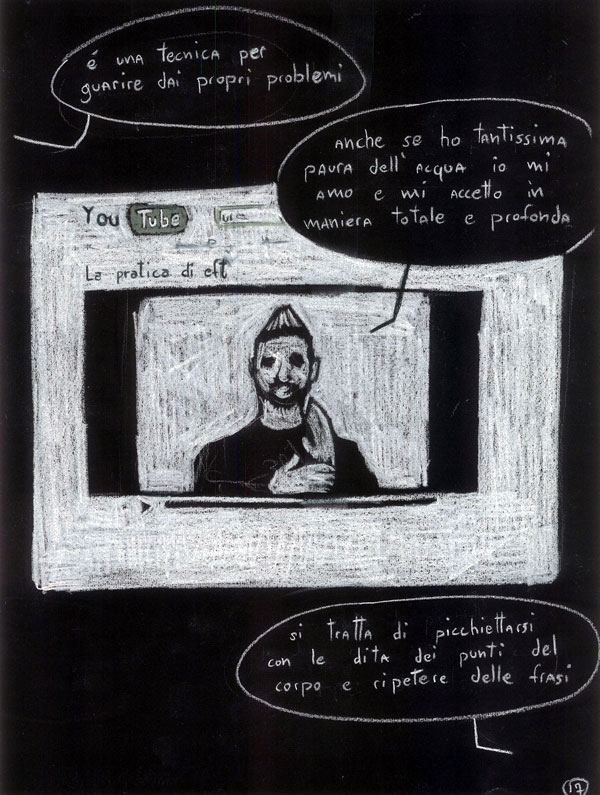 é una tecnica per
guarire dai propri problemi
anche se ho tantissima
paura dell'acqua io mi
amo e mi accetto in
maniera totale e profonda
You Tube
La pratica di eft
si tratta di picchiettarsi
con le dita dei punti del
corpo e ripetere delle frasi
17